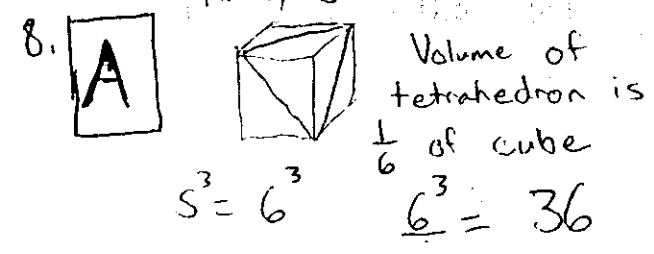 8. A
Volume of
tetrahedron is
1/6 of cube
s³ = 6³
6³ = 36